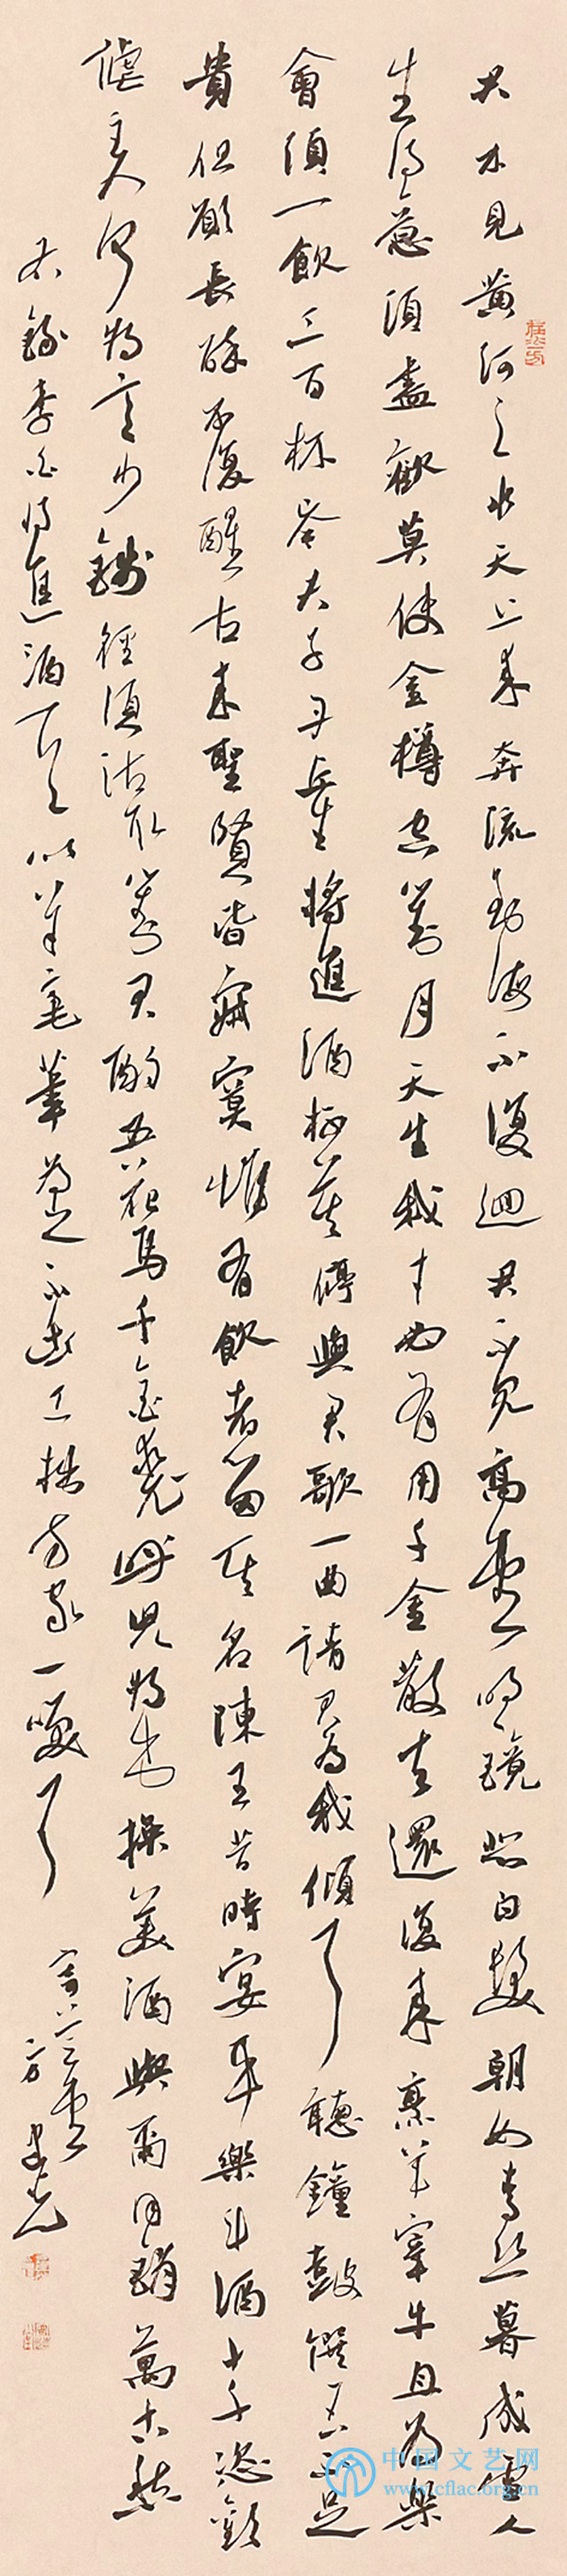 君不見黄河之水天上来奔流到海不復迴君不見高堂明鏡悲白髮朝如青絲暮成雪人
生得意須盡歡莫使金樽空對月天生我才必有用千金散盡還復来烹羊宰牛且為樂
會須一飲三百杯岑夫子丹丘生將進酒杯莫停與君歌一曲請君為我傾耳聽鐘鼓饌玉不足
貴但願長醉不復醒古来聖賢皆寂寞惟有飲者留其名陳王昔時宴平樂斗酒十千恣歡
謔主人何為言少錢徑須沽取對君酌五花馬千金裘呼兒將出換美酒與爾同銷萬古愁
右錄李白將進酒以羊毫筆為之不計工拙方家一笑耳
中国文艺网
www.cflac.org.cn